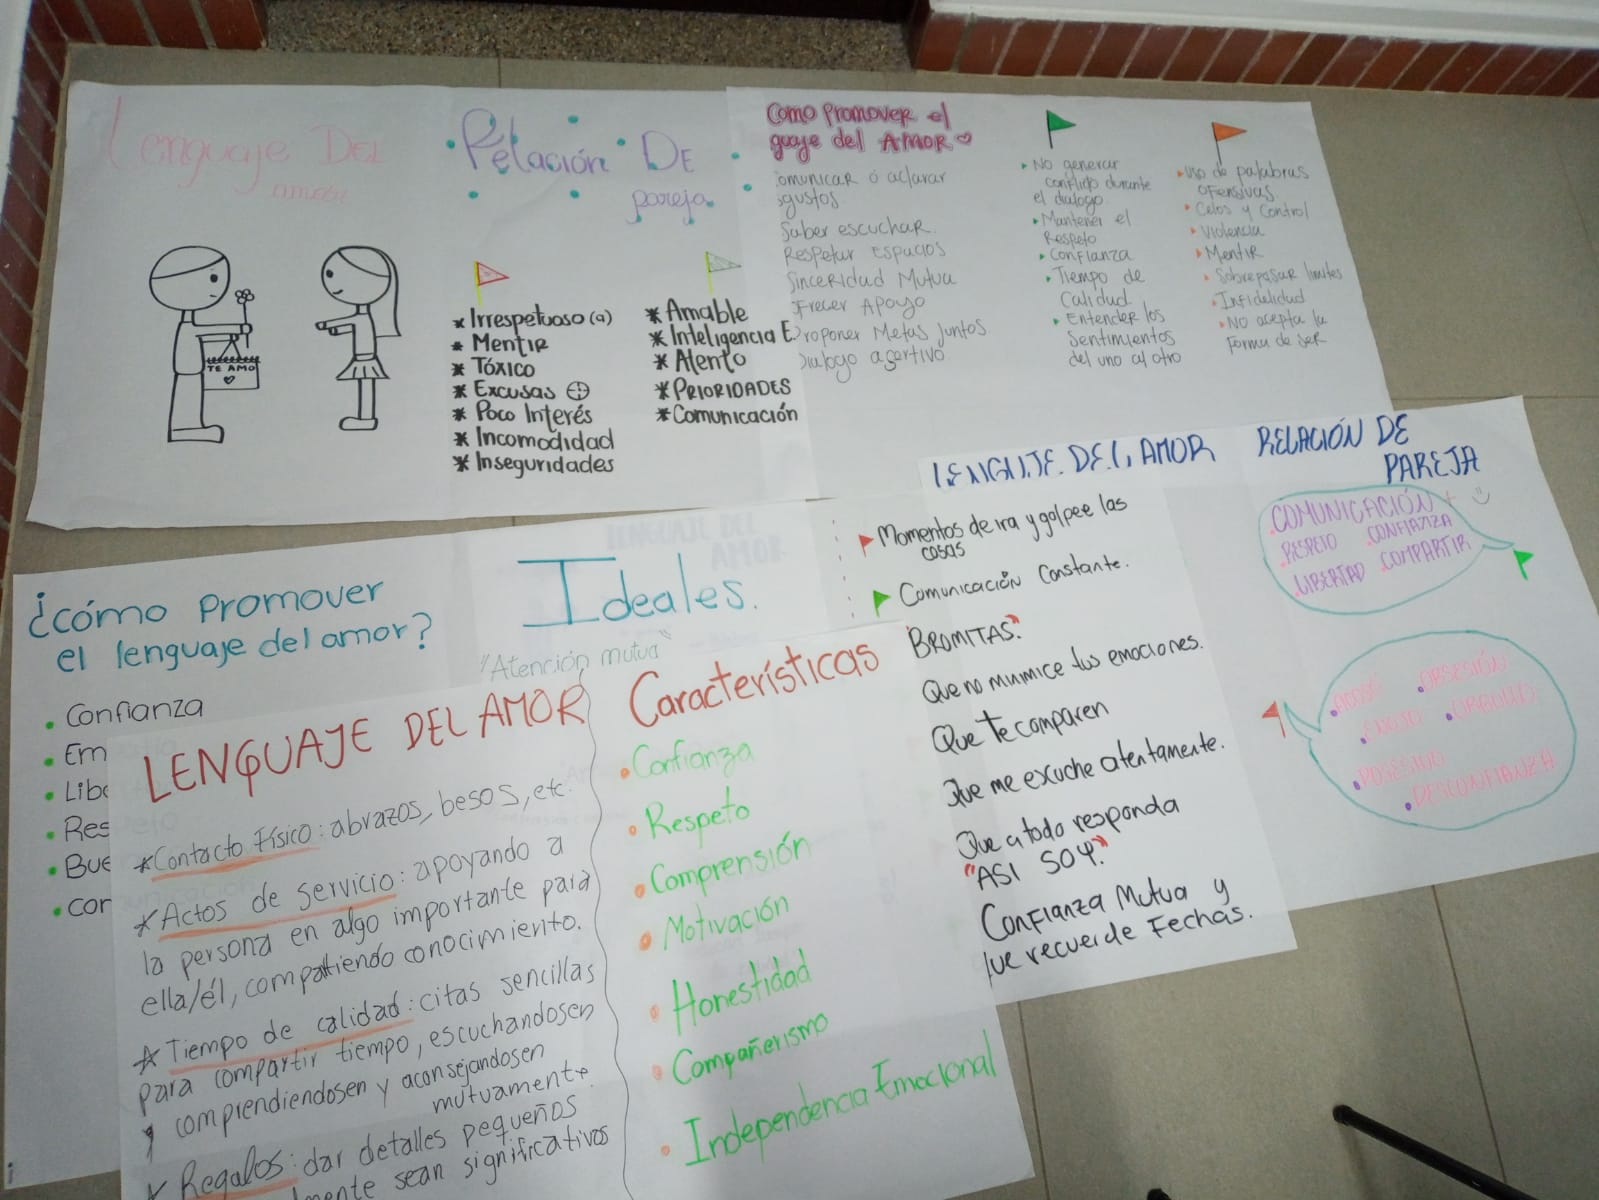 Lenguaje DEL
amor
TE AMO
Relación DE
pareja
* Irrespetuoso (a)
* Mentir
* Tóxico
* Excusas
* Poco Interés
* Incomodidad
* Inseguridades
* Amable
* Inteligencia E.
* Atento
* PRIORIDADES
* Comunicación
Como promover el
guaje del AMOR
omunicar o aclarar
gustos
Saber escuchar.
Respetar Espacios
Sinceridad Mutua
frecer Apoyo
Proponer Metas Juntos
Dialogo asertivo
No generar
conflicto durante
el dialogo
Mantener el
Respeto
Confianza
Tiempo de
Calidad
Entender los
Sentimientos
del uno al otro
Uso de palabras
ofensivas.
Celos y Control
Violencia
Mentir
Sobrepasar limites
Infidelidad
NO acepta la
Forma de ser
¿cómo promover
el lenguaje del amor?
• Confianza
• Em
• Libe
• Res
• Bue
• cor
Ideales.
"Atención mutua"
LENGUAJE DEL AMOR
*Contacto Físico: abrazos, besos, etc.
*Actos de servicio: apoyando a
la persona en algo importante para
ella/él, compartiendo conocimiento.
*Tiempo de calidad: citas sencillas
para compartir tiempo, escuchandosen
comprendiendosen y aconsejandosen
mutuamente.
Regalos: dar detalles pequeños
mente sean significativos
Características
• Confianza
• Respeto
• Comprensión
• Motivación
• Honestidad
• Compañerismo
• Independencia Emocional
LENGUAJE DEL AMOR
Momentos de ira y golpee las
cosas
Comunicación Constante.
"BROMITAS."
Que no minimice tus emociones.
Que te comparen
Que me escuche atentamente.
Que a todo responda
"ASI SOY."
Confianza Mutua y
que recuerde Fechas.
RELACIÓN DE
PAREJA
COMUNICACIÓN
RESPETO CONFIANZA
LIBERTAD COMPARTIR
OBSESIÓN
POSESIVO
DESCONFIANZA